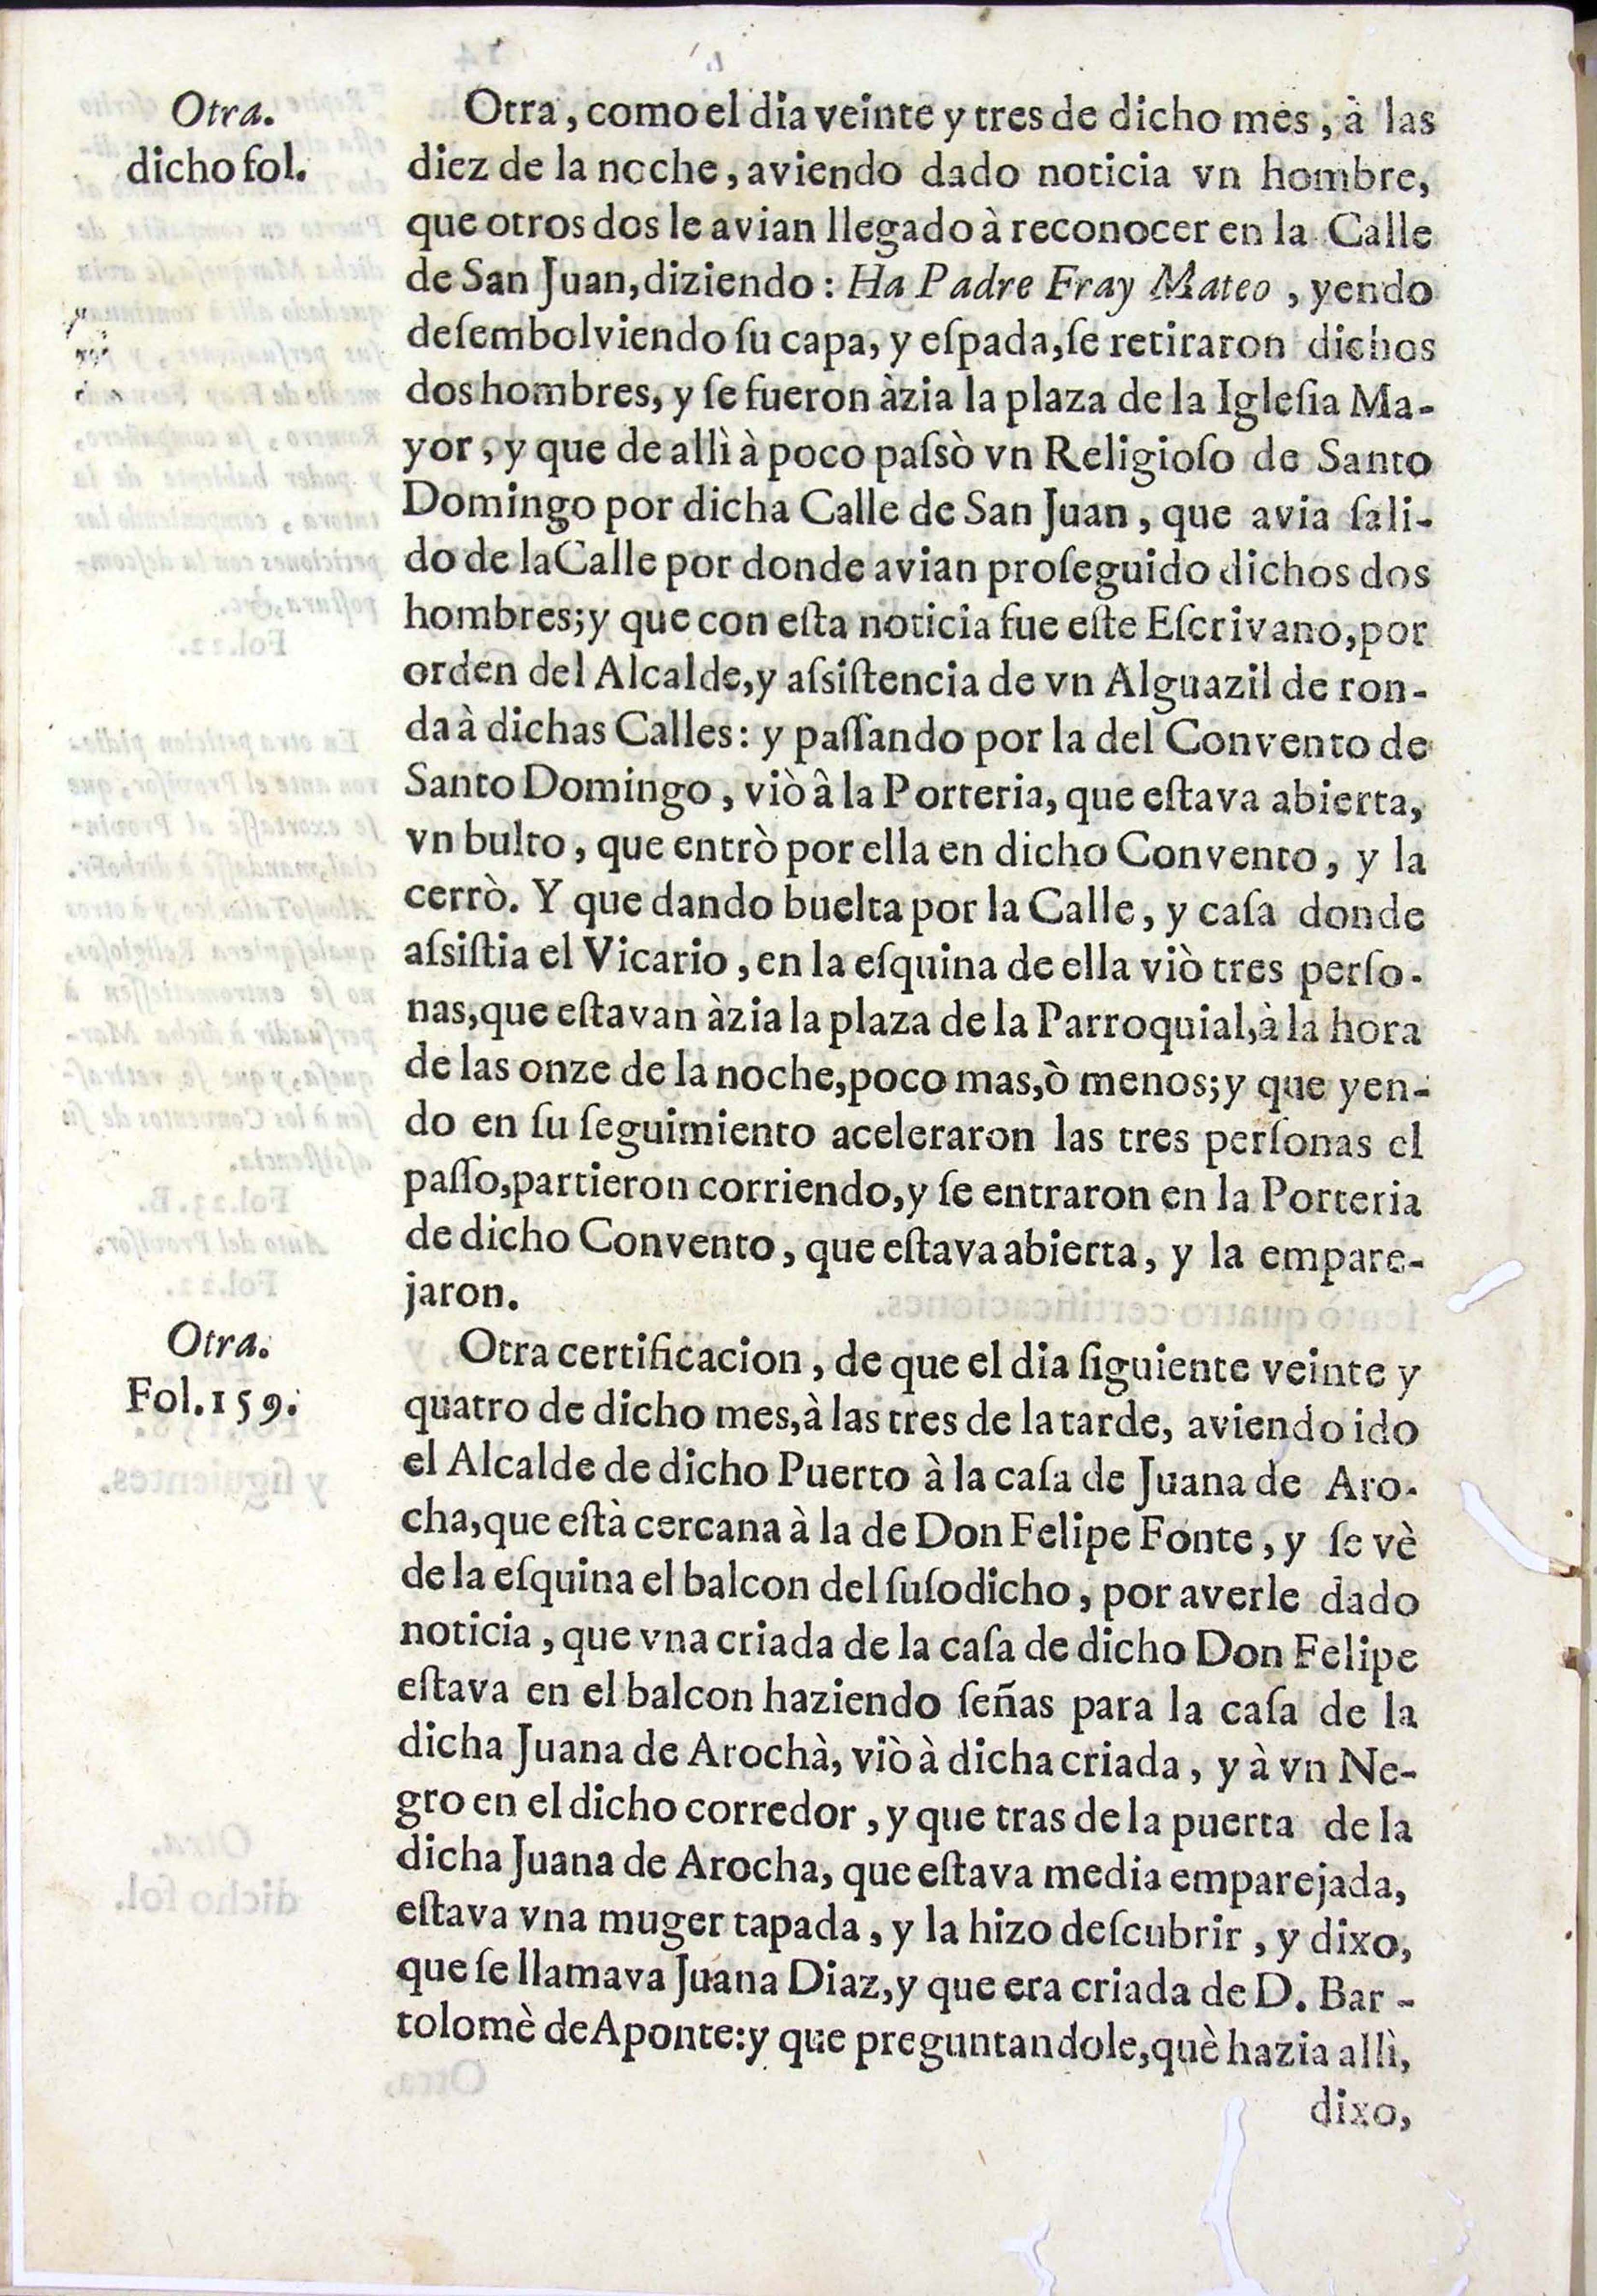 Otra.
dicho fol.
Otra, como el dia veinte y tres de dicho mes, à las
diez de la noche, aviendo dado noticia vn hombre,
que otros dos le avian llegado à reconocer en la Calle
de San Juan, diziendo: Ha Padre Fray Mateo, yendo
deſembolviendo ſu capa, y eſpada, ſe retiraron dichos
dos hombres, y ſe fueron àzia la plaza de la Igleſia Ma-
yor, y que de allì à poco paſsò vn Religioſo de Santo
Domingo por dicha Calle de San Juan, que avia ſali-
do de la Calle por donde avian proſeguido dichos dos
hombres; y que con eſta noticia fue eſte Eſcrivano, por
orden del Alcalde, y aſsiſtencia de vn Alguazil de ron-
da à dichas Calles: y paſſando por la del Convento de
Santo Domingo, viò â la Porteria, que eſtava abierta,
vn bulto, que entrò por ella en dicho Convento, y la
cerrò. Y que dando buelta por la Calle, y caſa donde
aſsiſtia el Vicario, en la eſquina de ella viò tres perſo-
nas, que eſtavan àzia la plaza de la Parroquial, à la hora
de las onze de la noche, poco mas, ò menos; y que yen-
do en ſu ſeguimiento aceleraron las tres perſonas el
paſſo, partieron corriendo, y ſe entraron en la Porteria
de dicho Convento, que eſtava abierta, y la empare-
jaron.
Otra.
Fol. 159.
Otra certificacion, de que el dia ſiguiente veinte y
quatro de dicho mes, à las tres de la tarde, aviendo ido
el Alcalde de dicho Puerto à la caſa de Juana de Aro-
cha, que eſtà cercana à la de Don Felipe Fonte, y ſe vè
de la eſquina el balcon del ſuſodicho, por averle dado
noticia, que vna criada de la caſa de dicho Don Felipe
eſtava en el balcon haziendo ſeñas para la caſa de la
dicha Juana de Arochà, viò à dicha criada, y à vn Ne-
gro en el dicho corredor, y que tras de la puerta de la
dicha Juana de Arocha, que eſtava media emparejada,
eſtava vna muger tapada, y la hizo deſcubrir, y dixo,
que ſe llamava Juana Diaz, y que era criada de D. Bar-
tolomè de Aponte: y que preguntandole, què hazia allì,
dixo,